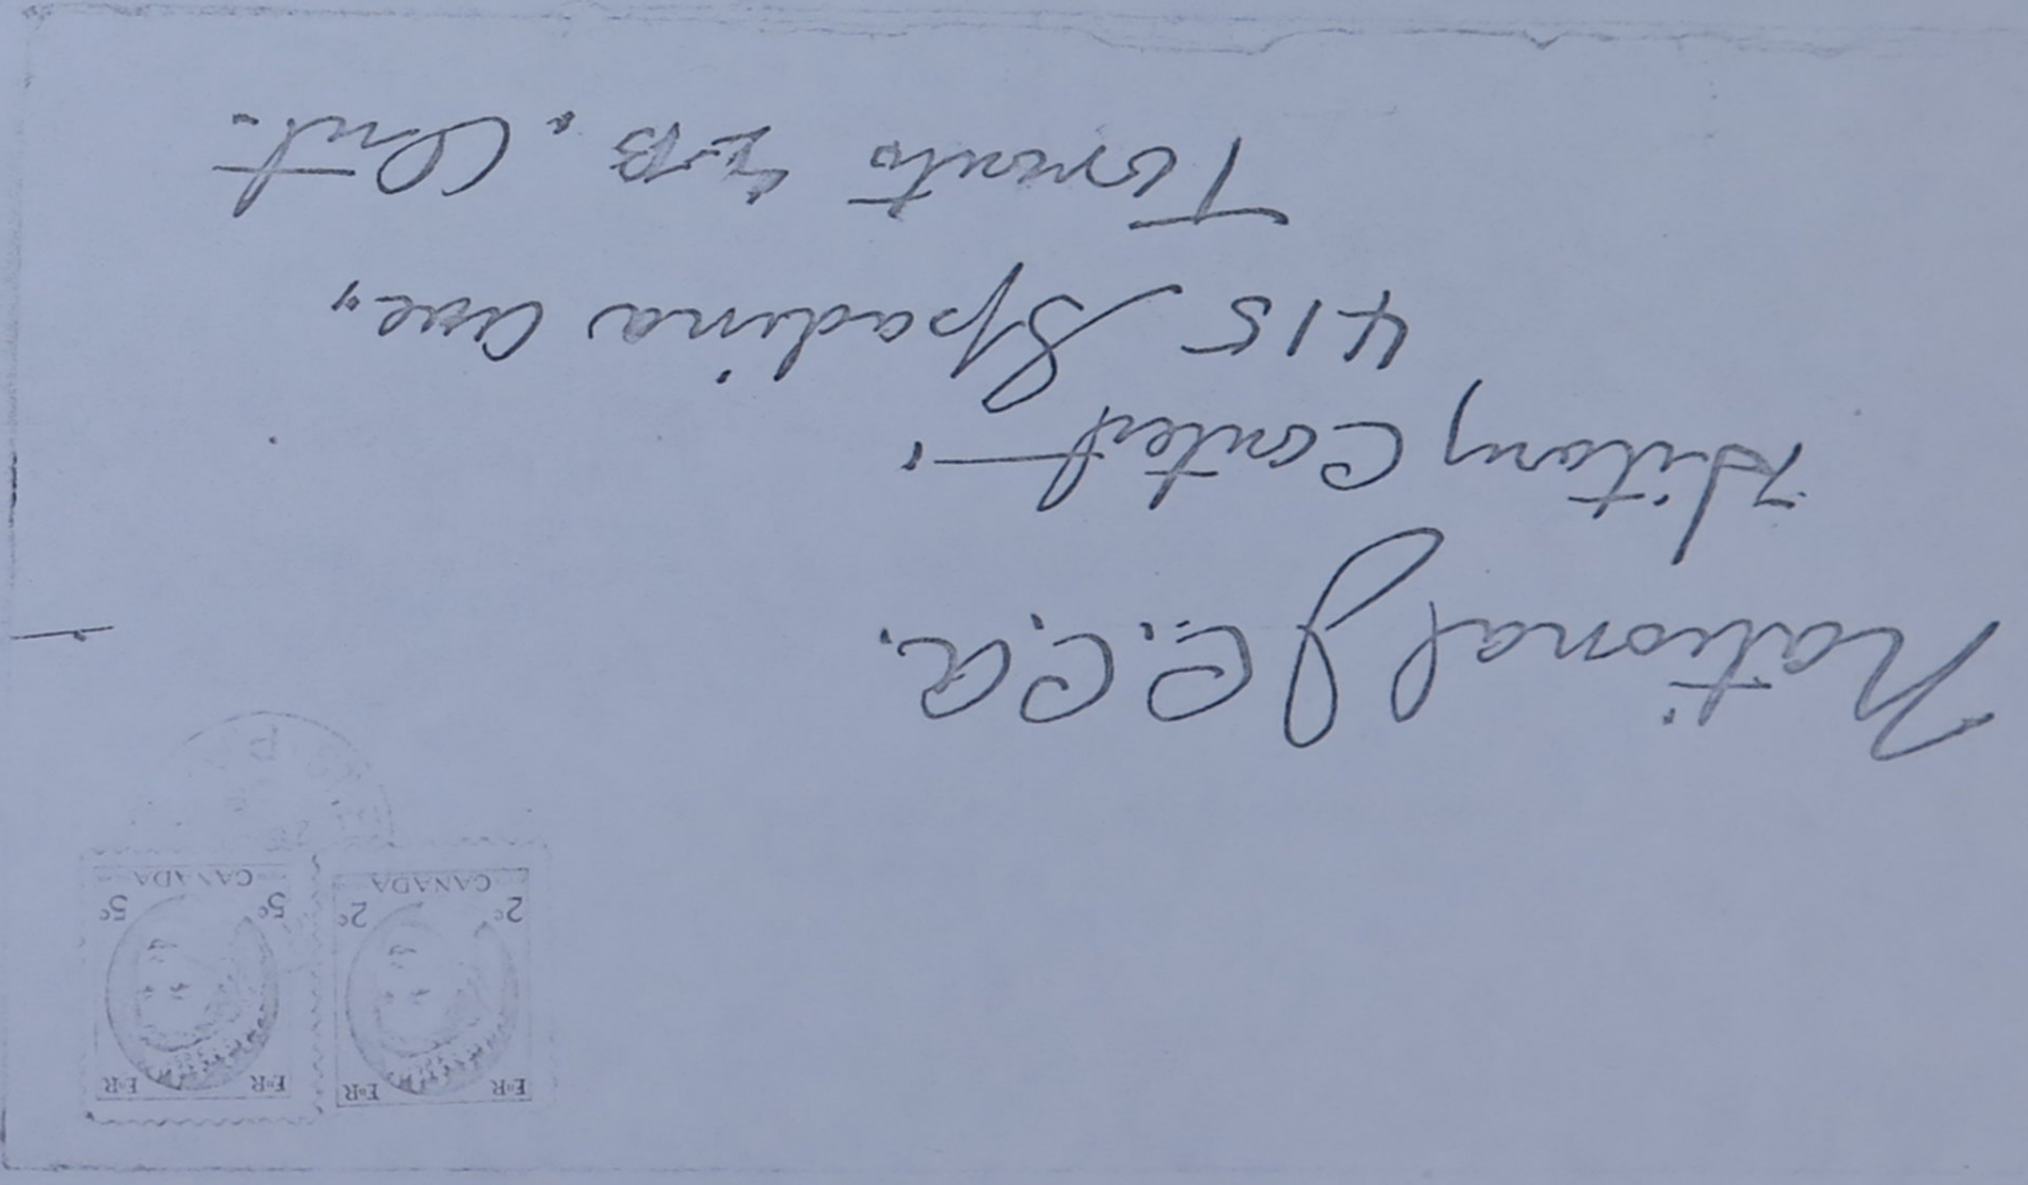 E·R E·R E·R E·R
2¢ 2¢ 5¢ 5¢
CANADA CANADA
National J.C.C.A.
History Contest,
415 Spadina Ave.,
Toronto 2-B, Ont.